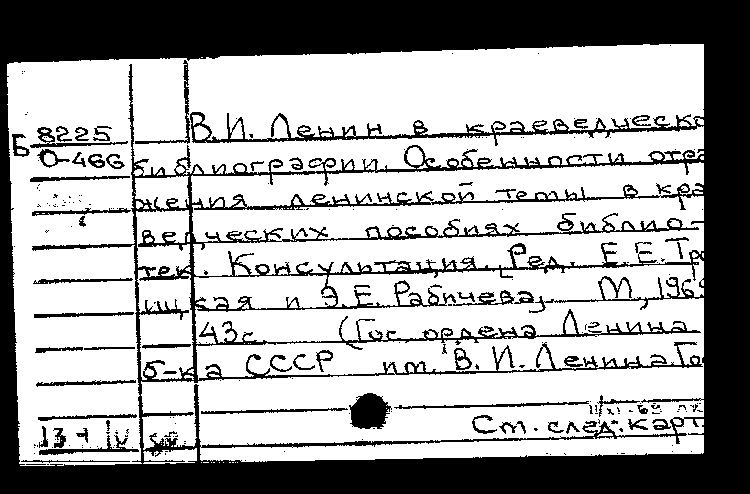 Б 8225
О-466
В.И. Ленин в краеведческо
библиографии. Особенности отра
жения ленинской темы в кра
ведческих пособиях библио-
тек. Консультация. [Ред. Е.Е. Тро
ицкая и Э.Е. Рабичева]. М., 1969
43с. (Гос. ордена Ленина
б-ка СССР им. В.И. Ленина. Гос
Ст. след. карт.
13-1 IV